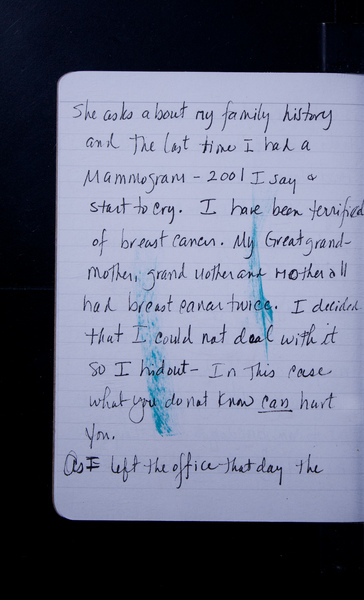 She asks about my family history
and the last time I had a
Mammogram - 2001 I say &
start to cry. I have been terrified
of breast cancer. My Great grand-
mother, grand Mother and Mother all
had breast cancer twice. I decided
that I could not deal with it
so I hid out - In This case
what you do not know can hurt
you.
As I left the office that day the